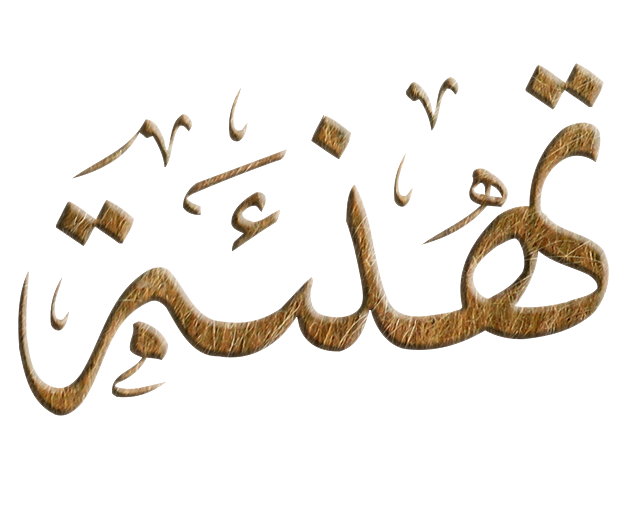 تهنئة